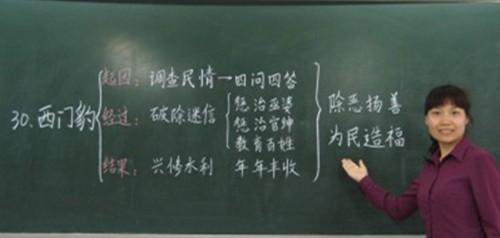 30.西门豹
起因：调查民情→四问四答
经过：破除迷信
惩治巫婆
惩治官绅
教育百姓
结果：兴修水利 年年丰收
除恶扬善
为民造福